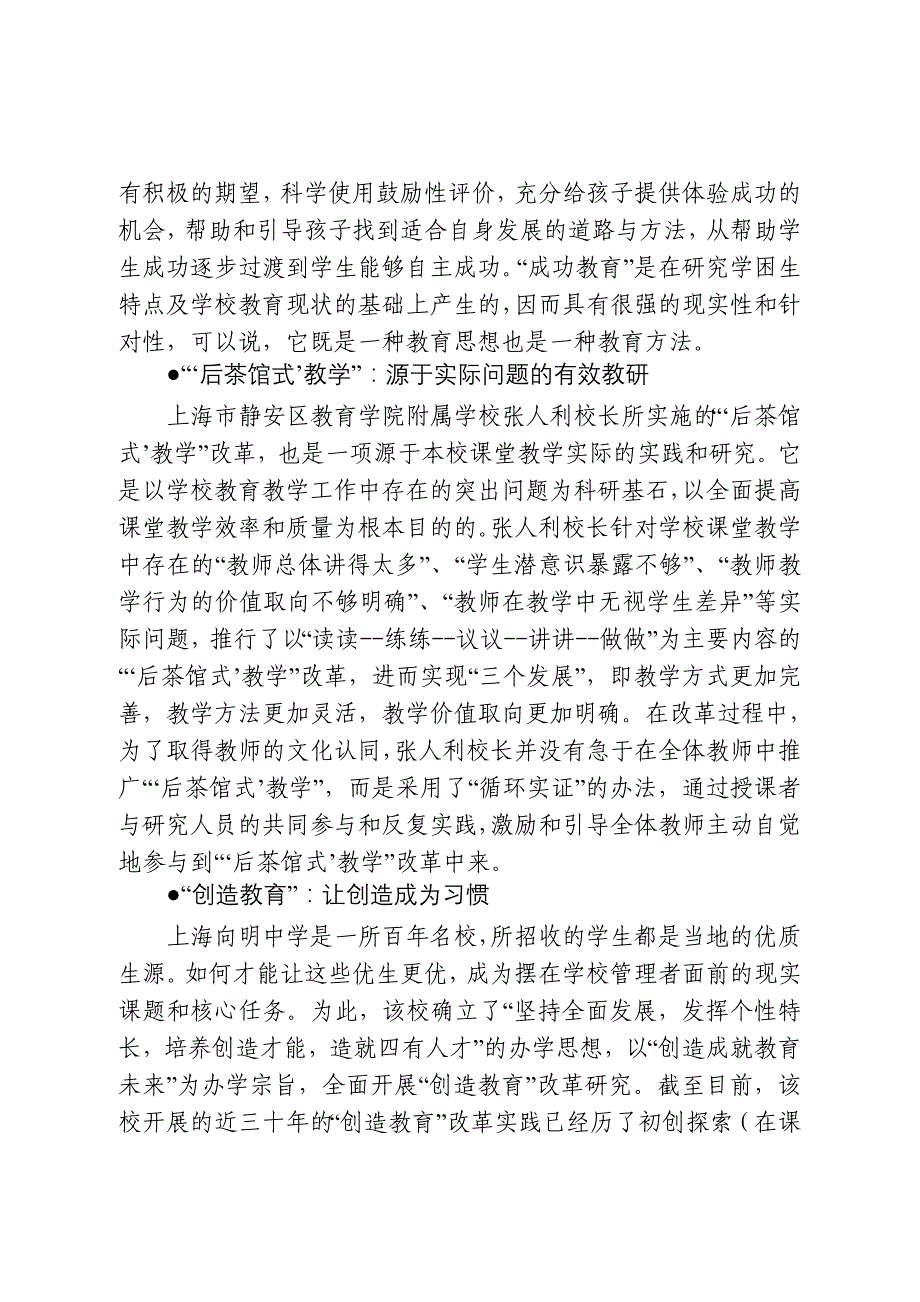 有积极的期望，科学使用鼓励性评价，充分给孩子提供体验成功的
机会，帮助和引导孩子找到适合自身发展的道路与方法，从帮助学
生成功逐步过渡到学生能够自主成功。“成功教育”是在研究学困生
特点及学校教育现状的基础上产生的，因而具有很强的现实性和针
对性，可以说，它既是一种教育思想也是一种教育方法。
●“‘后茶馆式’教学”：源于实际问题的有效教研
上海市静安区教育学院附属学校张人利校长所实施的“‘后茶馆
式’教学”改革，也是一项源于本校课堂教学实际的实践和研究。它
是以学校教育教学工作中存在的突出问题为科研基石，以全面提高
课堂教学效率和质量为根本目的的。张人利校长针对学校课堂教学
中存在的“教师总体讲得太多”、“学生潜意识暴露不够”、“教师教
学行为的价值取向不够明确”、“教师在教学中无视学生差异”等实
际问题，推行了以“读读--练练--议议--讲讲--做做”为主要内容的
“‘后茶馆式’教学”改革，进而实现“三个发展”，即教学方式更加完
善，教学方法更加灵活，教学价值取向更加明确。在改革过程中，
为了取得教师的文化认同，张人利校长并没有急于在全体教师中推
广“‘后茶馆式’教学”，而是采用了“循环实证”的办法，通过授课者
与研究人员的共同参与和反复实践，激励和引导全体教师主动自觉
地参与到“‘后茶馆式’教学”改革中来。
●“创造教育”：让创造成为习惯
上海向明中学是一所百年名校，所招收的学生都是当地的优质
生源。如何才能让这些优生更优，成为摆在学校管理者面前的现实
课题和核心任务。为此，该校确立了“坚持全面发展，发挥个性特
长，培养创造才能，造就四有人才”的办学思想，以“创造成就教育
未来”为办学宗旨，全面开展“创造教育”改革研究。截至目前，该
校开展的近三十年的“创造教育”改革实践已经历了初创探索（在课